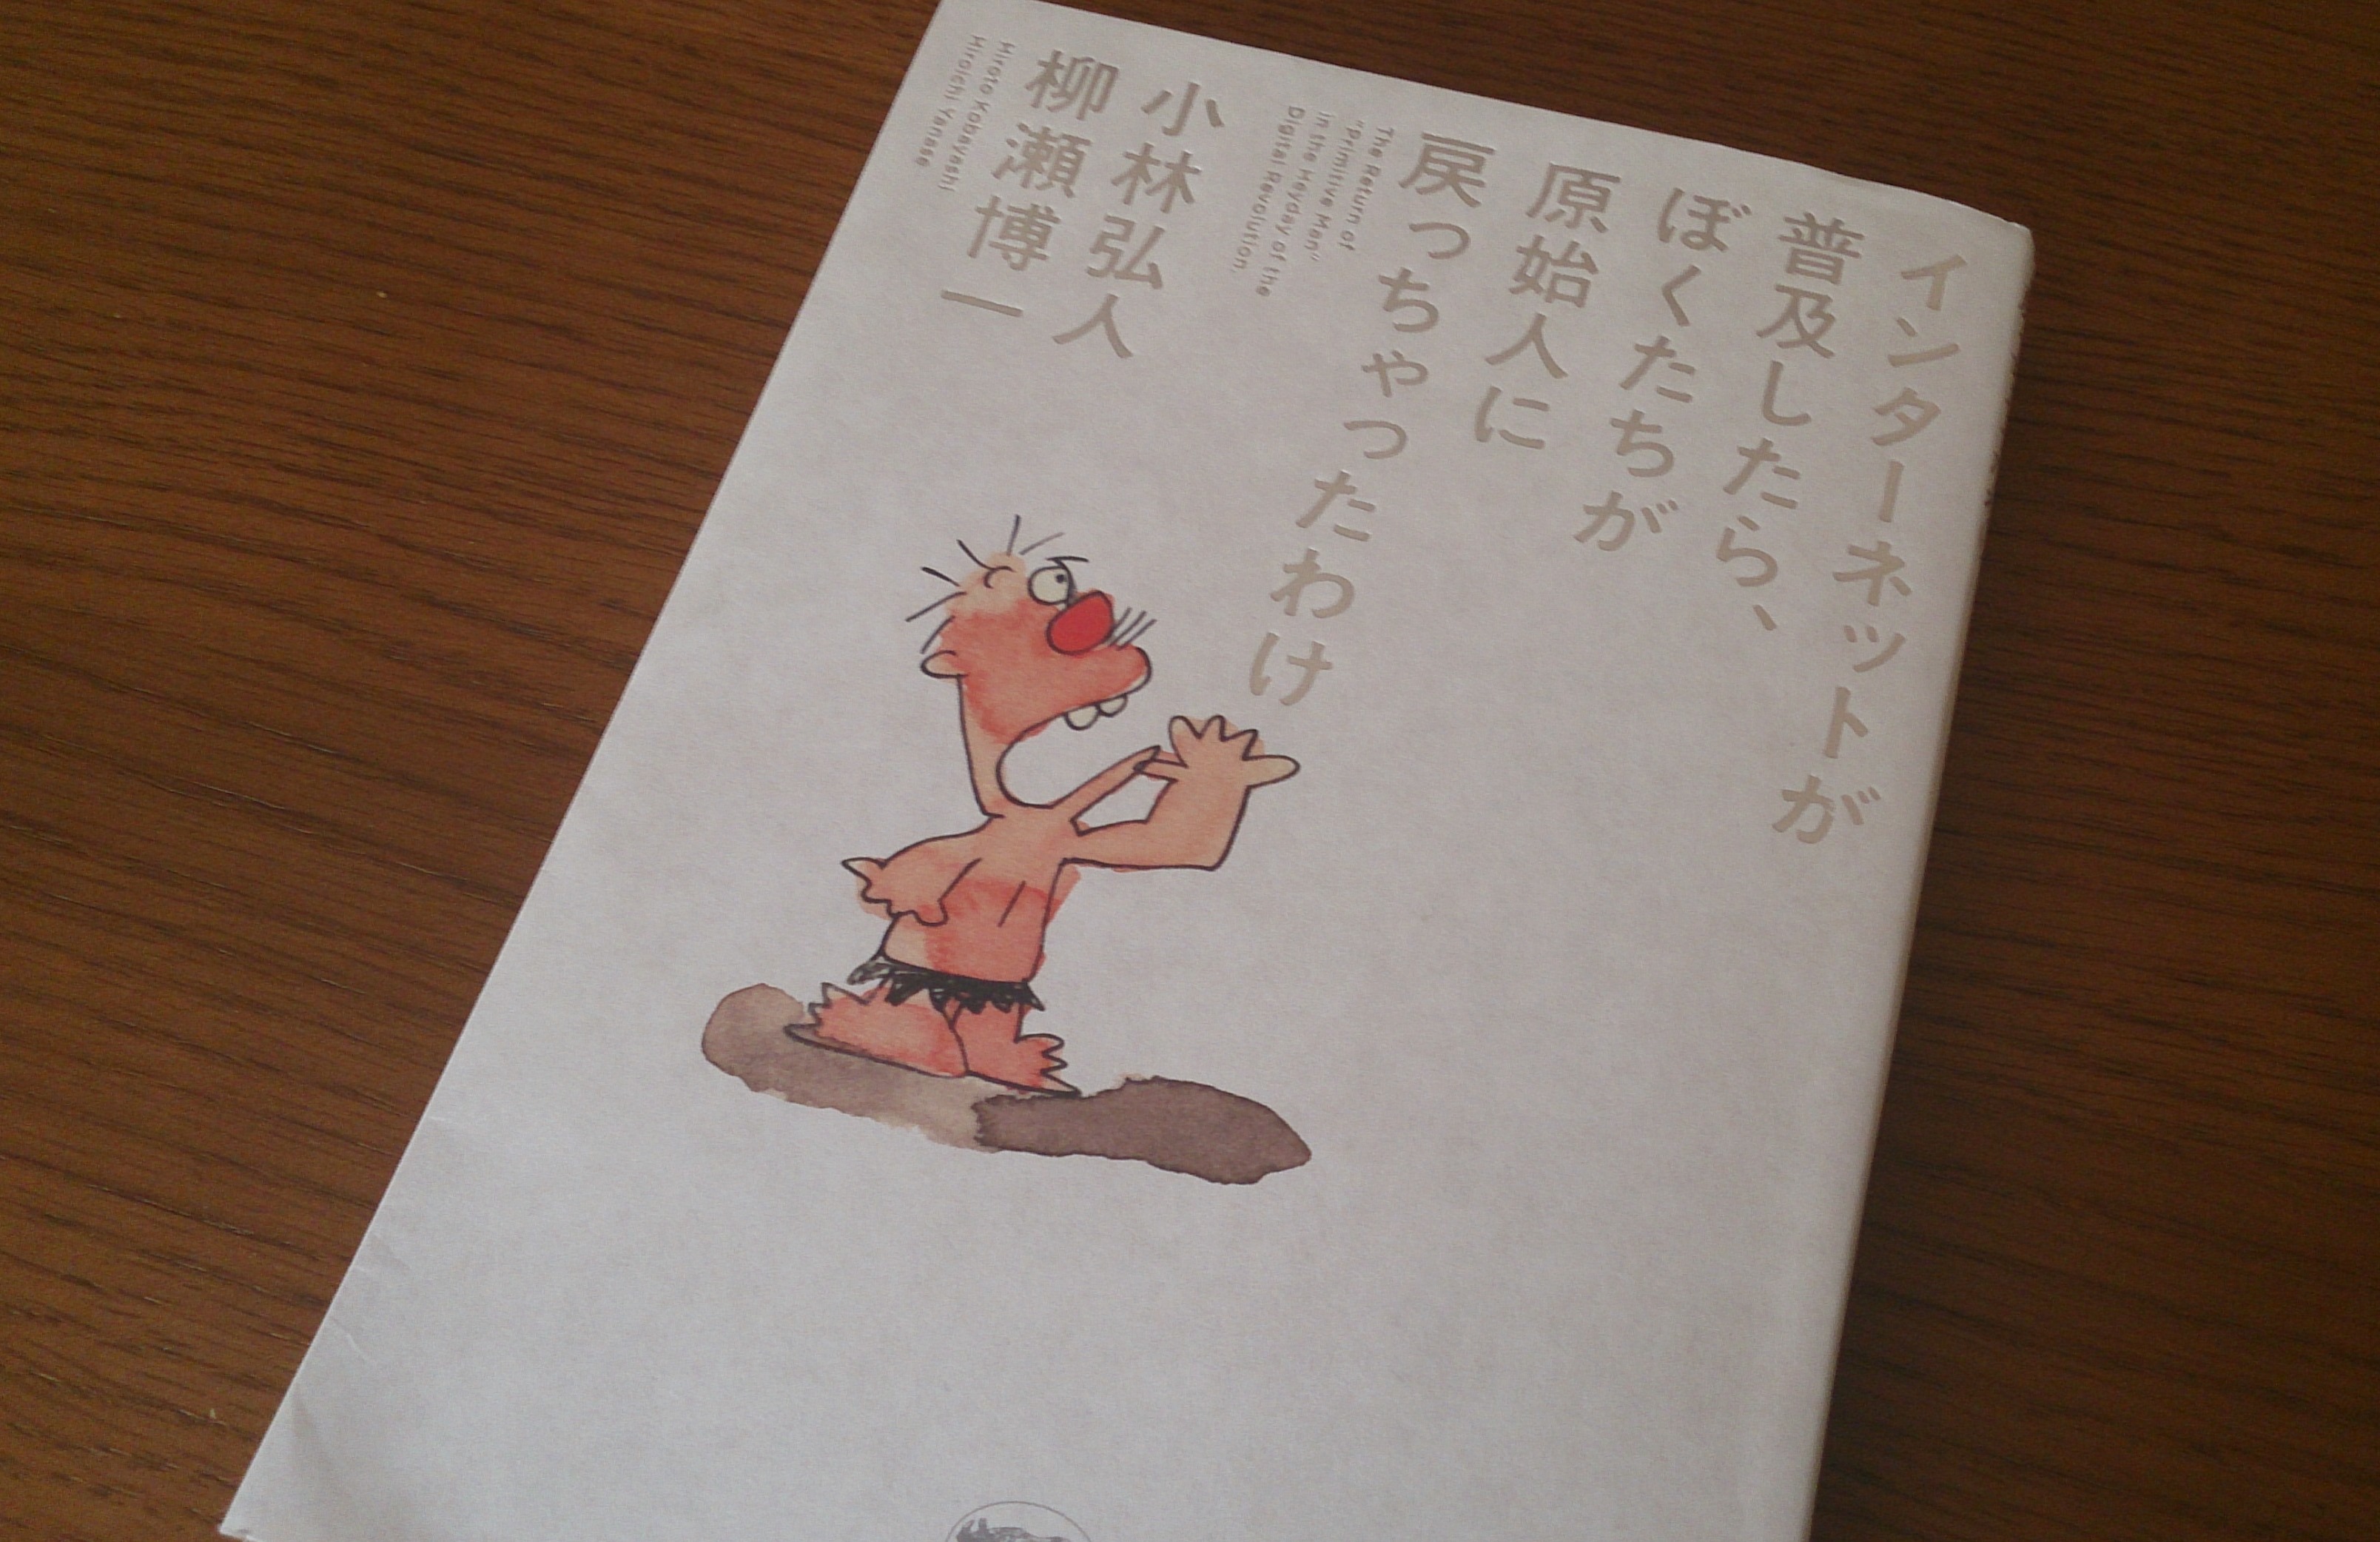 インターネットが
普及したら、
ぼくたちが
原始人に
戻っちゃったわけ
The Return of
"Primitive Man"
in the Heyday of the
Digital Revolution.
小林弘人
柳瀬博一
Hiroto Kobayashi
Hiroichi Yanase